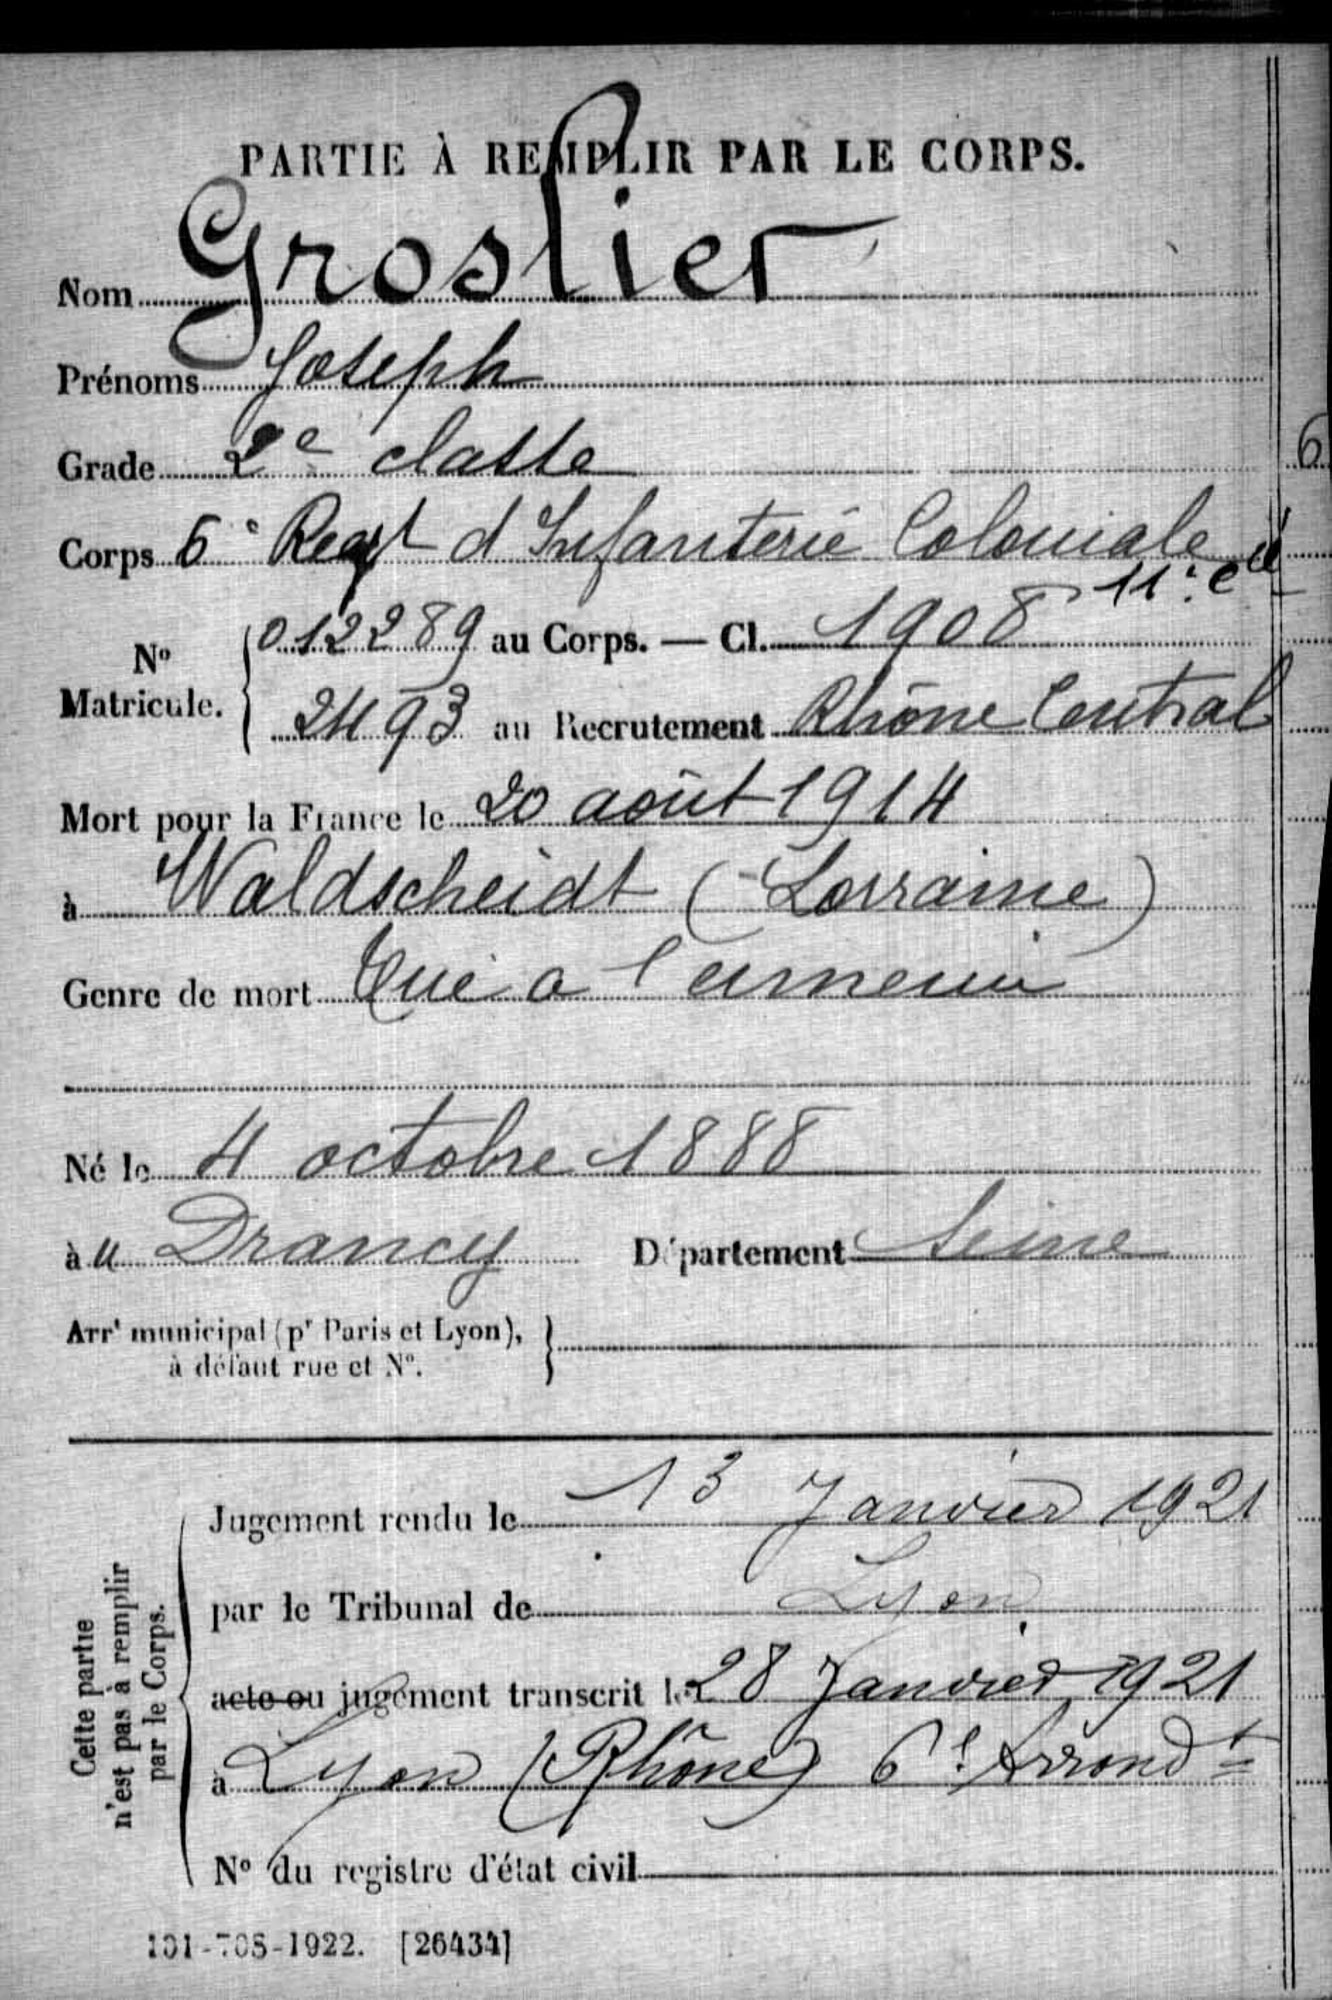 PARTIE À REMPLIR PAR LE CORPS.
Nom Groslier
Prénoms Joseph
Grade 2e classe
Corps 6e Regt d Infanterie Coloniale
11e Cie
No Matricule. { 012289 au Corps. — Cl. 1908
2493 au Recrutement Rhône Central
Mort pour la France le 20 août 1914
à Waldscheidt (Lorraine)
Genre de mort Tué a l'ennemi
Né le 4 octobre 1888
à u Drancy Département Seine
Arrt municipal (pr Paris et Lyon),
à défaut rue et No.
Cette partie
n'est pas à remplir
par le Corps.
Jugement rendu le 13 Janvier 1921
par le Tribunal de Lyon
acte ou jugement transcrit le 28 Janvier 1921
à Lyon (Rhône) 6e Arrondt
No du registre d'état civil
101-708-1922. [26434]
6